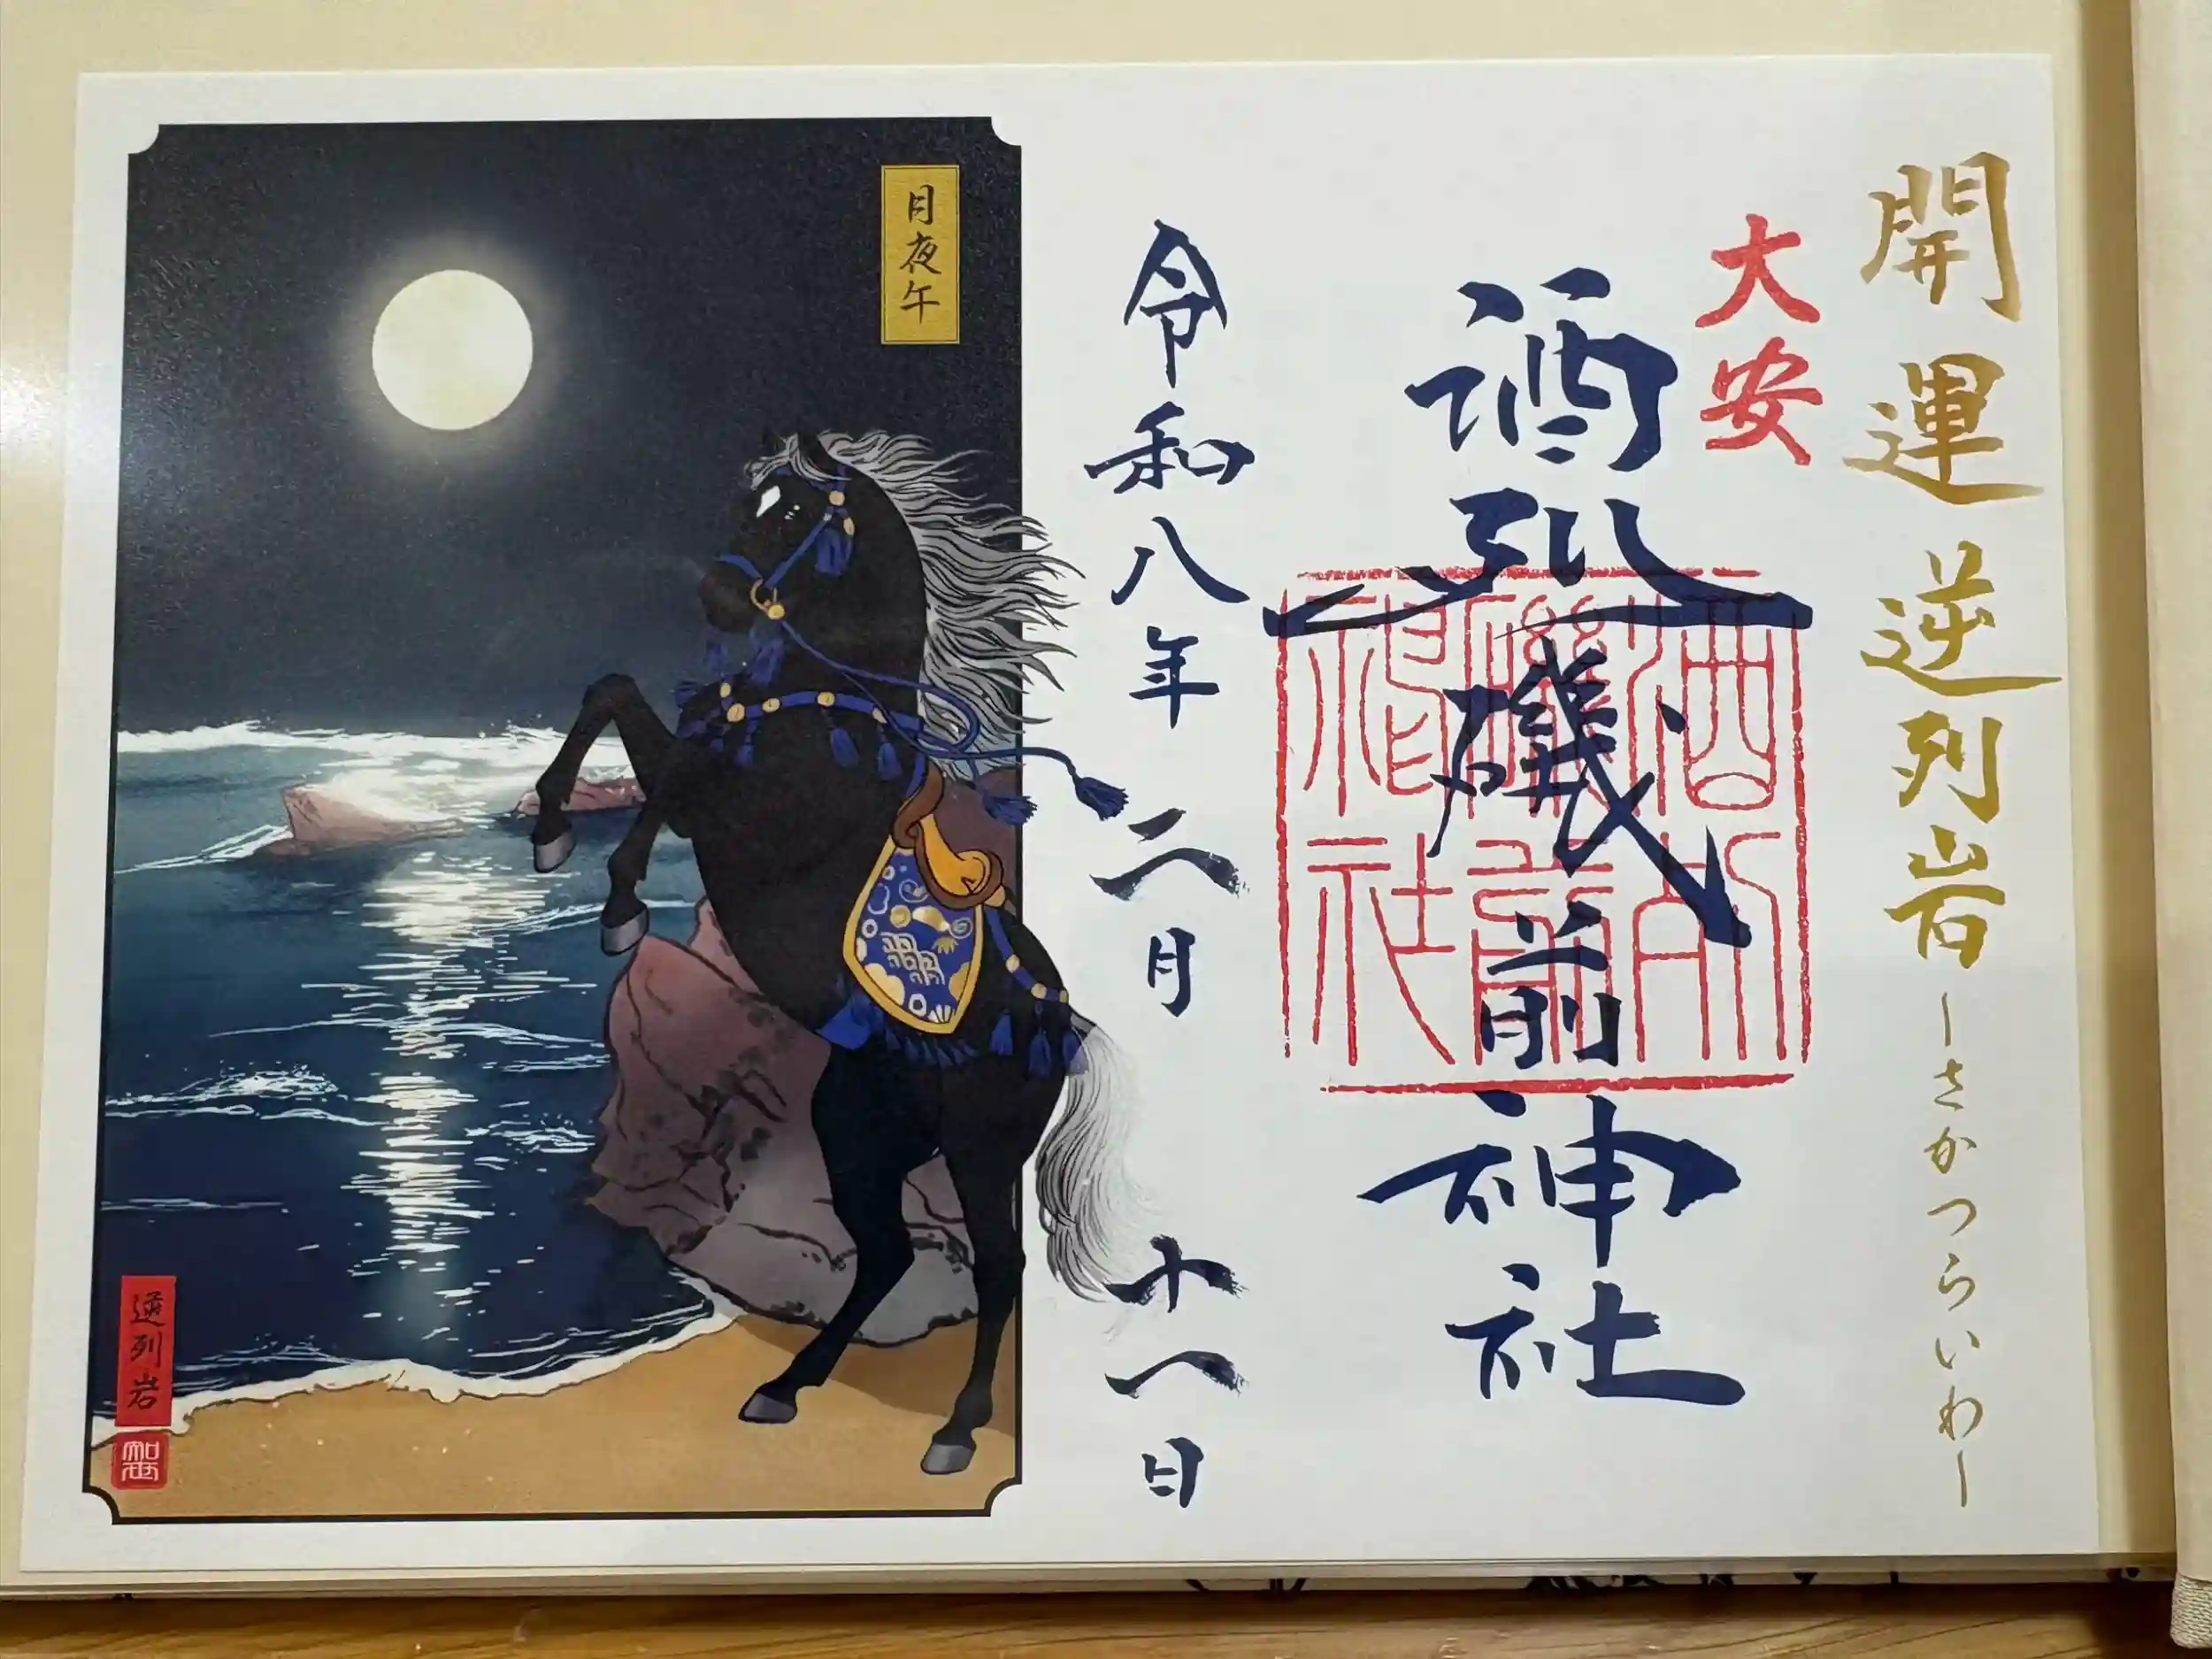 開運 逆列岩 ーさかつらいわー
大安
酒列磯前神社
酒列
磯前
神社
令和八年 二月 十一日
月夜午
逆列岩